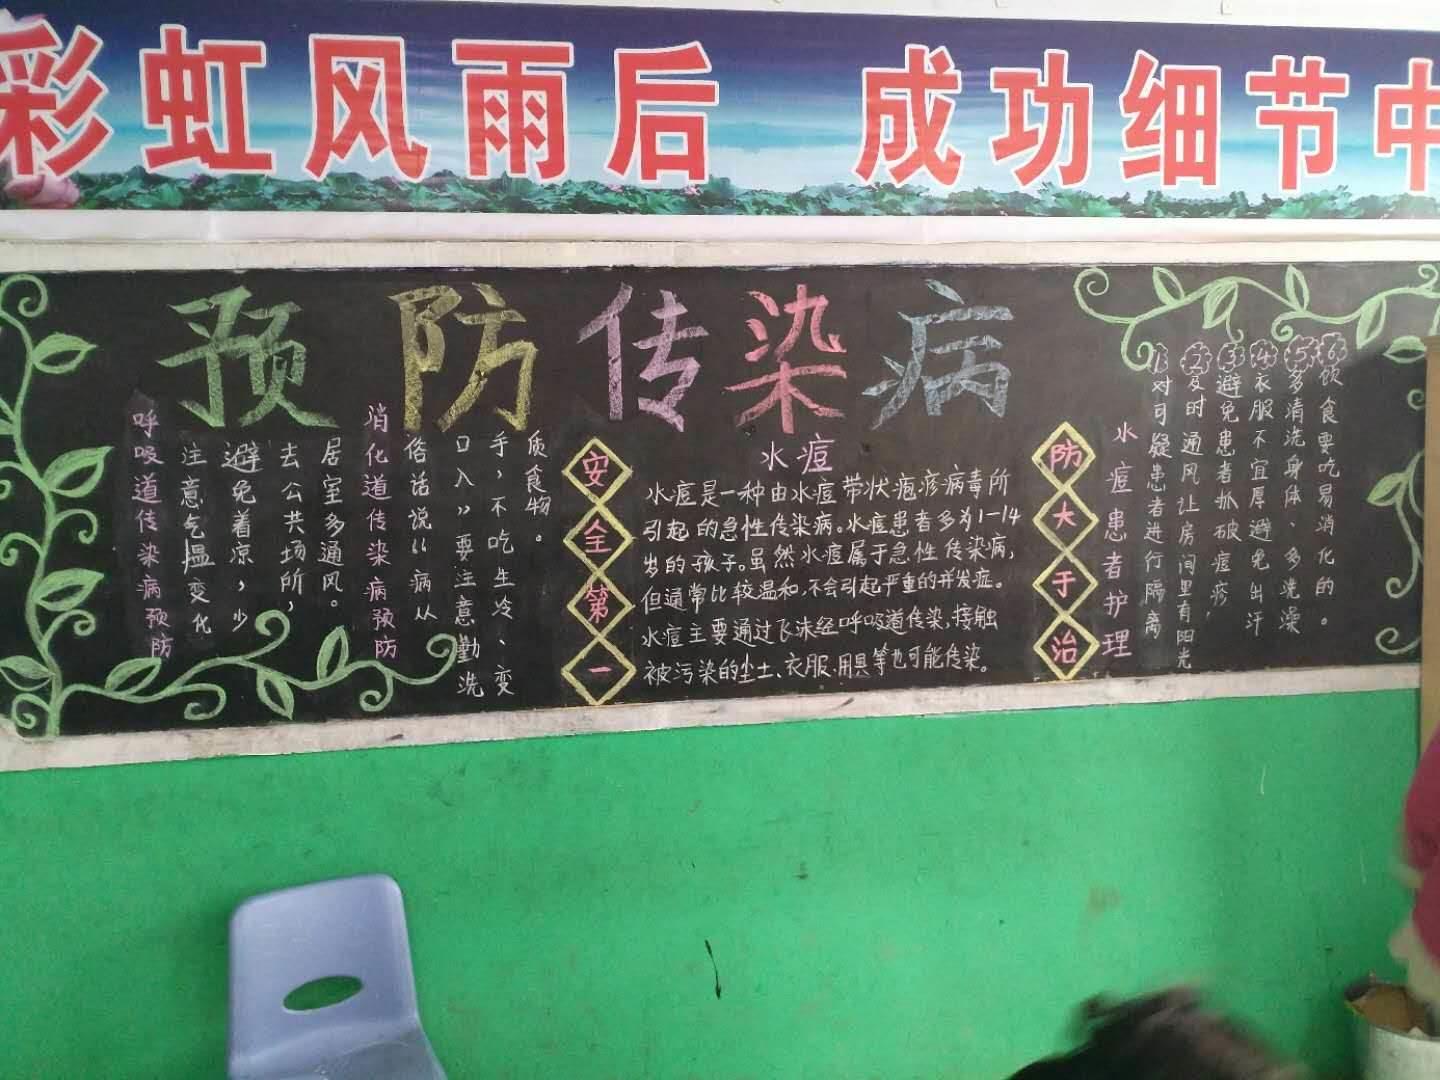 彩虹风雨后 成功细节中
预防传染病
呼吸道传染病预防
注意气温变化
避免着凉，少
去公共场所，
居室多通风。
消化道传染病预防
俗话说“病从
口入”要注意勤洗
手，不吃生冷、变
质食物。
安全第一
水痘
水痘是一种由水痘带状疱疹病毒所
引起的急性传染病。水痘患者多为1-14
岁的孩子。虽然水痘属于急性传染病，
但通常比较温和，不会引起严重的并发症。
水痘主要通过飞沫经呼吸道传染，接触
被污染的尘土、衣服、用具等也可能传染。
防大于治
水痘患者护理
1对可疑患者进行隔离
2及时通风让房间里有阳光
3避免患者抓破痘疹
4衣服不宜厚避免出汗
5多清洗身体、多洗澡
6饮食要吃易消化的。